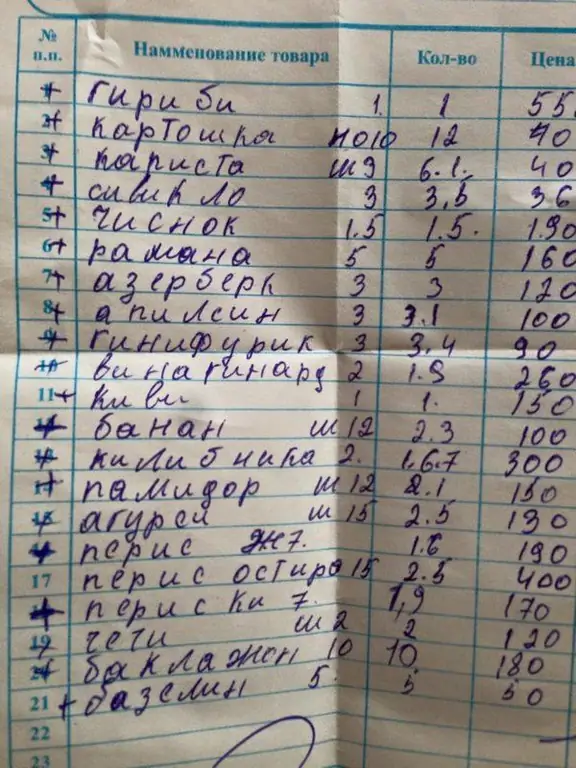 № п.п. Наименование товара Кол-во Цена
1 гириби 1. 1 55.
2 картошка но10 12 40
3 каписта ш3 6.1. 40
4 сивикло 3 3,5 36
5 чиснок 1.5 1.5. 190
6 рамана 5 5 160
7 азерберк 3 3 120
8 апилсин 3 3.1 100
9 гинифурик 3 3.4 90
10 винагинард 2 1.9 260
11 киви 1 1. 150
12 банан ш12 2.3 100
13 килибника 2. 1.6.7 300
14 памидор ш12 2.1 150
15 агурси ш15 2.5 130
16 перис ж7. 1.6 190
17 перис остира 15 2.5 400
18 перис ки 7. 1,9 170
19 чети ш2 2 120
20 баклажен 10 10 180
21 базелин 5. 5 50
22
23